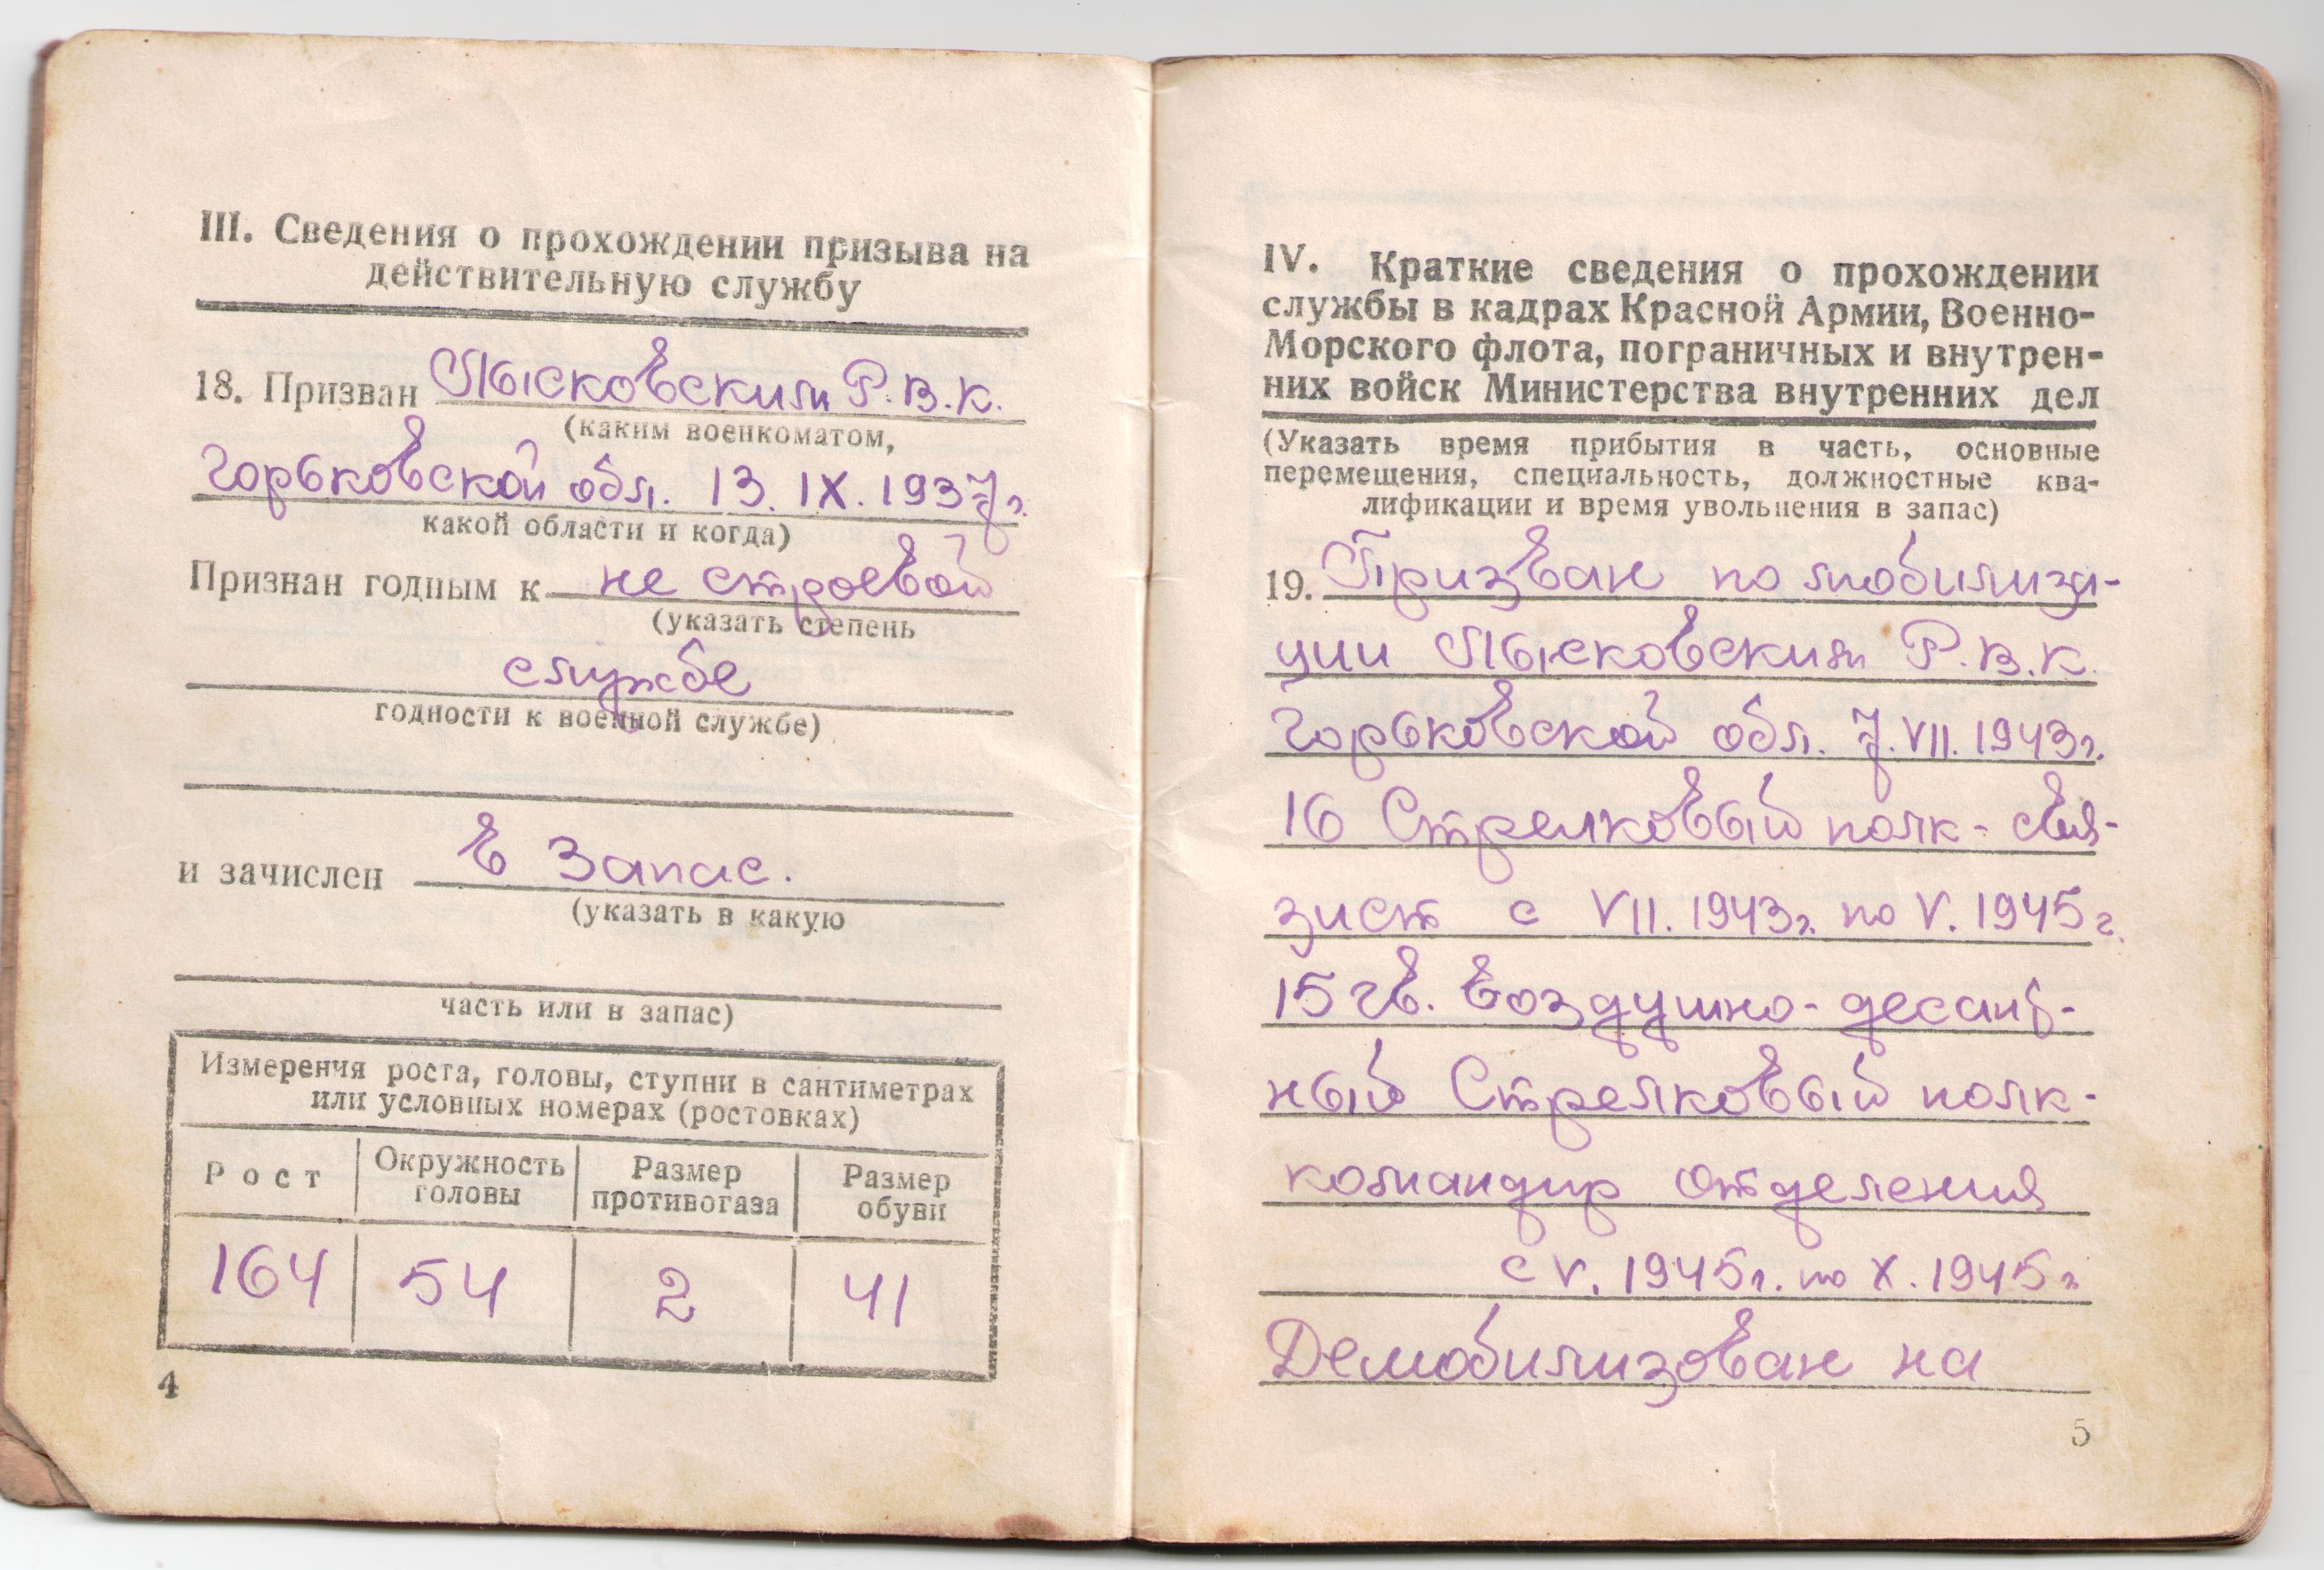 III. Сведения о прохождении призыва на
действительную службу
18. Призван Лысковским Р.В.К.
(каким военкоматом,
Горьковской обл. 13. IX. 1937г.
какой области и когда)
Признан годным к не строевой
(указать степень
службе
годности к военной службе)
и зачислен в Запас.
(указать в какую
часть или в запас)
Измеренчя роста, головы, ступни в сантиметрах
или условных номерах (ростовках)
Рост Окружность головы Размер противогаза Размер обуви
164 54 2 41
4
IV. Краткие сведения о прохождении
службы в кадрах Красной Армии, Военно-
Морского флота, пограничных и внутрен-
них войск Министерства внутренних дел
(Указать время прибытия в часть, основные
перемещения, специальность, должностные ква-
лификации и время увольнения в запас)
19. Призван по мобилиза-
ции Лысковским Р.В.К.
Горьковской обл. 7. VII. 1943г.
16 Стрелковый полк - свя-
зист с VII. 1943г. по V. 1945г.
15 гв. воздушно-десант-
ный Стрелковый полк-
командир отделения
с V. 1945г. по X. 1945г.
Демобилизован на
5